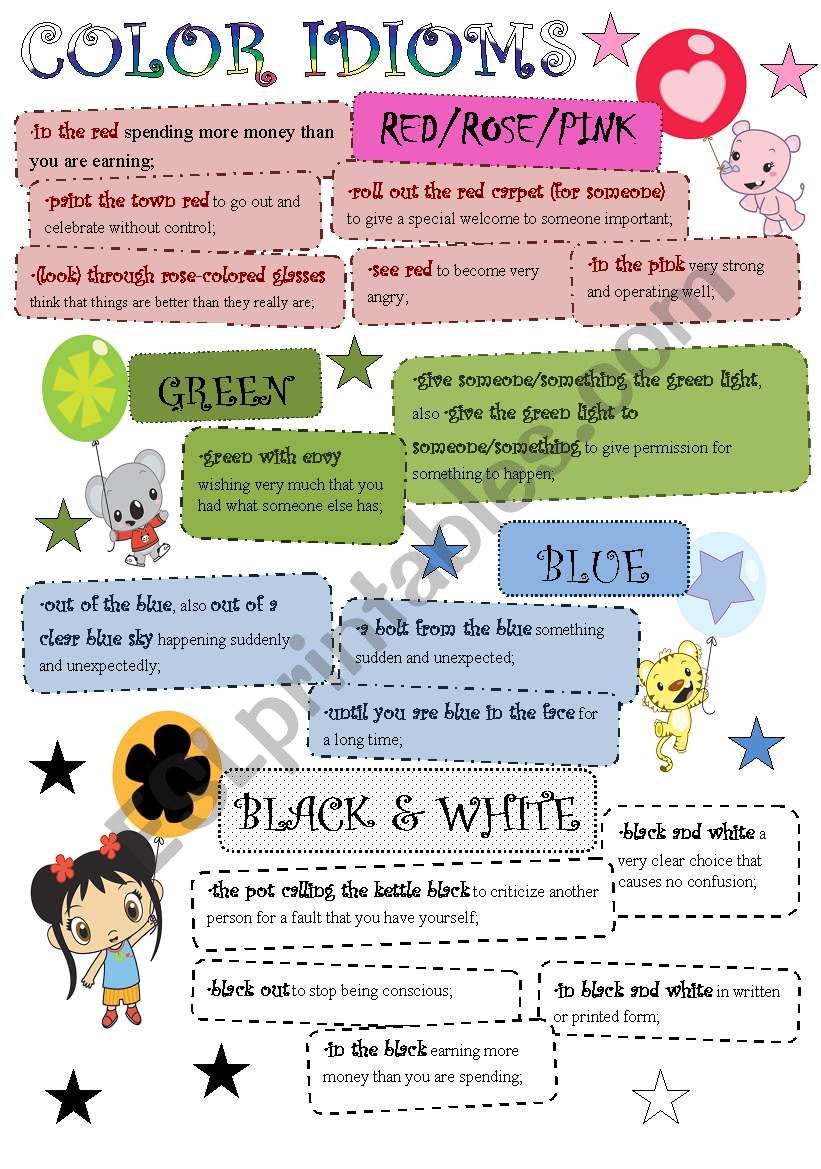 COLOR IDIOMS
RED/ROSE/PINK
·in the red spending more money than
you are earning;
·paint the town red to go out and
celebrate without control;
·roll out the red carpet (for someone)
to give a special welcome to someone important;
·(look) through rose-colored glasses
think that things are better than they really are;
·see red to become very
angry;
·in the pink very strong
and operating well;
GREEN
·give someone/something the green light,
also ·give the green light to
someone/something to give permission for
something to happen;
·green with envy
wishing very much that you
had what someone else has;
BLUE
·out of the blue, also out of a
clear blue sky happening suddenly
and unexpectedly;
·a bolt from the blue something
sudden and unexpected;
·until you are blue in the face for
a long time;
BLACK & WHITE
·black and white a
very clear choice that
causes no confusion;
·the pot calling the kettle black to criticize another
person for a fault that you have yourself;
·black out to stop being conscious;
·in black and white in written
or printed form;
·in the black earning more
money than you are spending;
ESLprintables.com